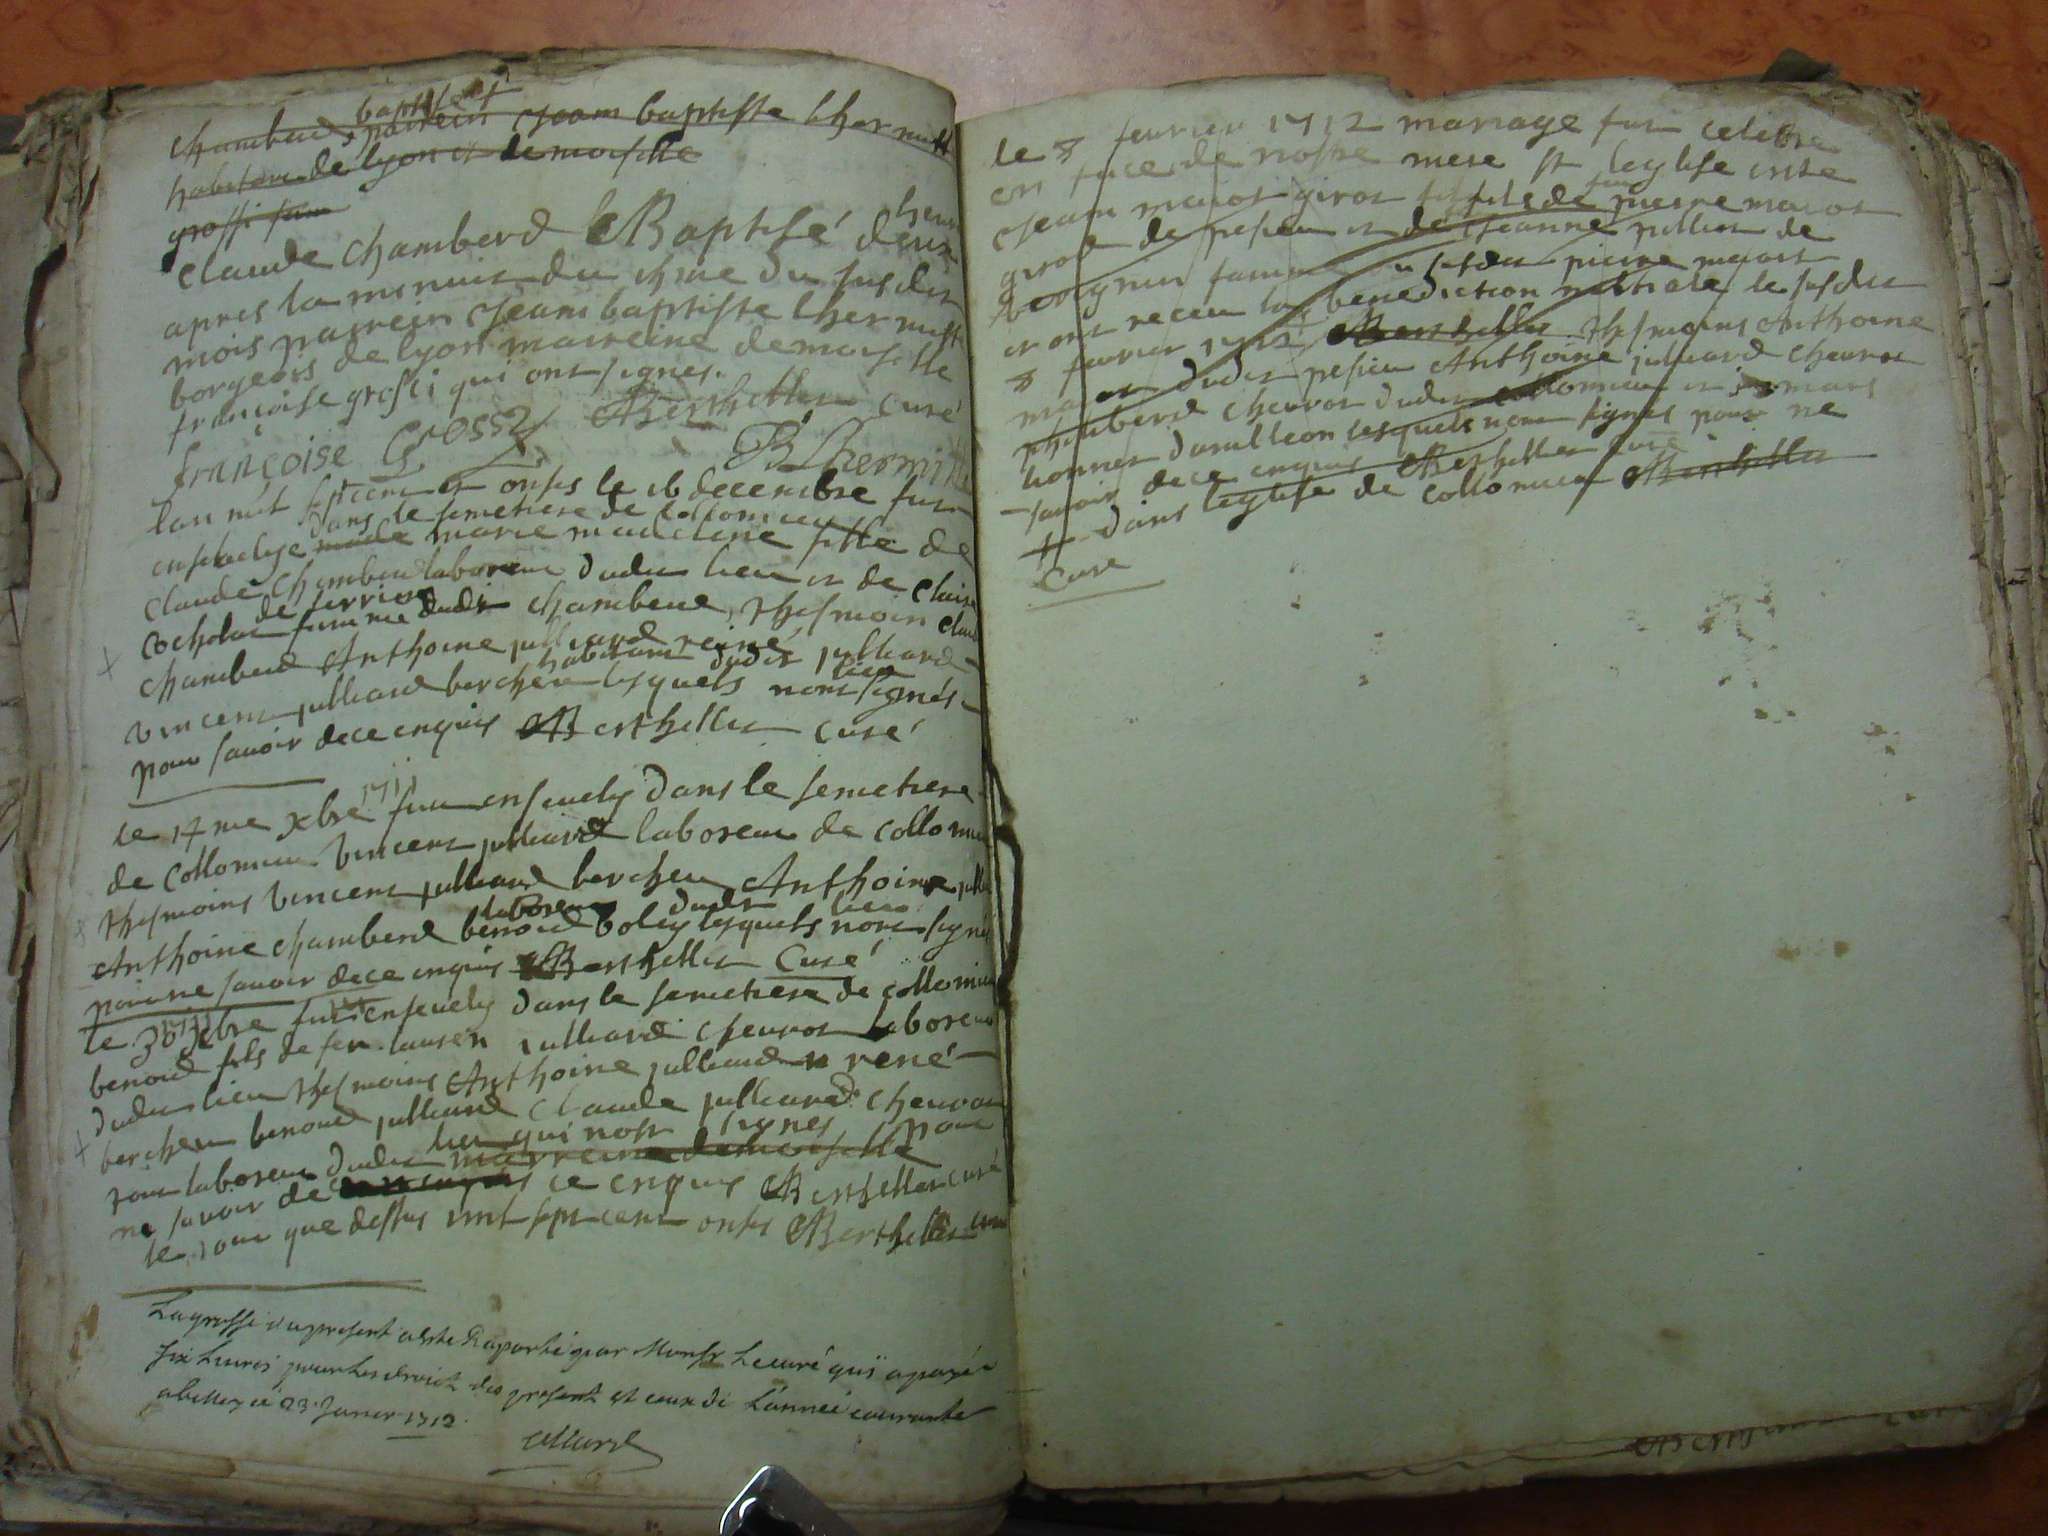 baptisé
chamberd parrein Jeam baptiste lhermitt
habitant de lyon et demoiselle
grossi
heures
claude chamberd Baptisé deux
apres la minuit du du susdit
mois parrein Jeam baptiste lhermitt
borgeois de lyon marreine demoiselle
françoise grossi qui ont signes.
françoise Grossy Berthellier curé
B Lhermitte
lan mil sept cent et onses le 16 decembre fut
dans le semetiere de collomieu
ensevelye marie madeleine fille de
claude chamberd laboreur dudit lieu et de claire
de
cocholat femme dudit chamberd, thesmoin claude
chamberd Anthoine julliard reiné julliard
habitant dudit lieu
vincent julliard bercheu lesquels nont signés
pour savoir de ce enquis Berthellier curé
1711
le 17me xbre fut ensevely dans le semetiere
de collomieu vincent julliard laboreur de collomieu
thesmoins vincent julliard bercheu Anthoine jull
laboreur dudit lieu
Anthoine chamberd benoid boley lesquels nont signé
pour ne savoir de ce enquis Berthellier Curé
1711
le 30 xbre fut ensevely dans le semetiere de collomieu
benoid fils de feu lauren julliard chevrot laboreur
dudit lieu thesmoins Anthoine julliard rené
bercheu benoid julliard claude julliard chevrot
lieu qui nont signes pour
tous laboreur dudit marreine demoiselle
ne savoir de ce enquis Berthellier curé
le jour que dessus mil sept cent onses Berthellier curé
La grosse du present a esté Raportée par Monsr Le curé qui a payé
six Livres pour Les droict des present et ceux de L'année courante
a belley ce 23 Janvier 1712.
le 8 fevrier 1712 mariage fut celebre
en face de nostre mere st leglise entre
feu
Jeam maiot girot fils de pierre maiot
girot de pesieu et de Jeanne pillion de
femme du susdit pierre maiot
et ont receu la benediction nubtiale le susdit
8 fevrier 1712 Berthellier thesmoins Anthoine
maiot dudit pesieu Anthoine julliard chevrot
chamberd chevrot dudit collomieu et
lesquels nont signes pour ne
savoir de ce enquis Berthellier curé
dans leglise de collomieu Berthellier
Curé